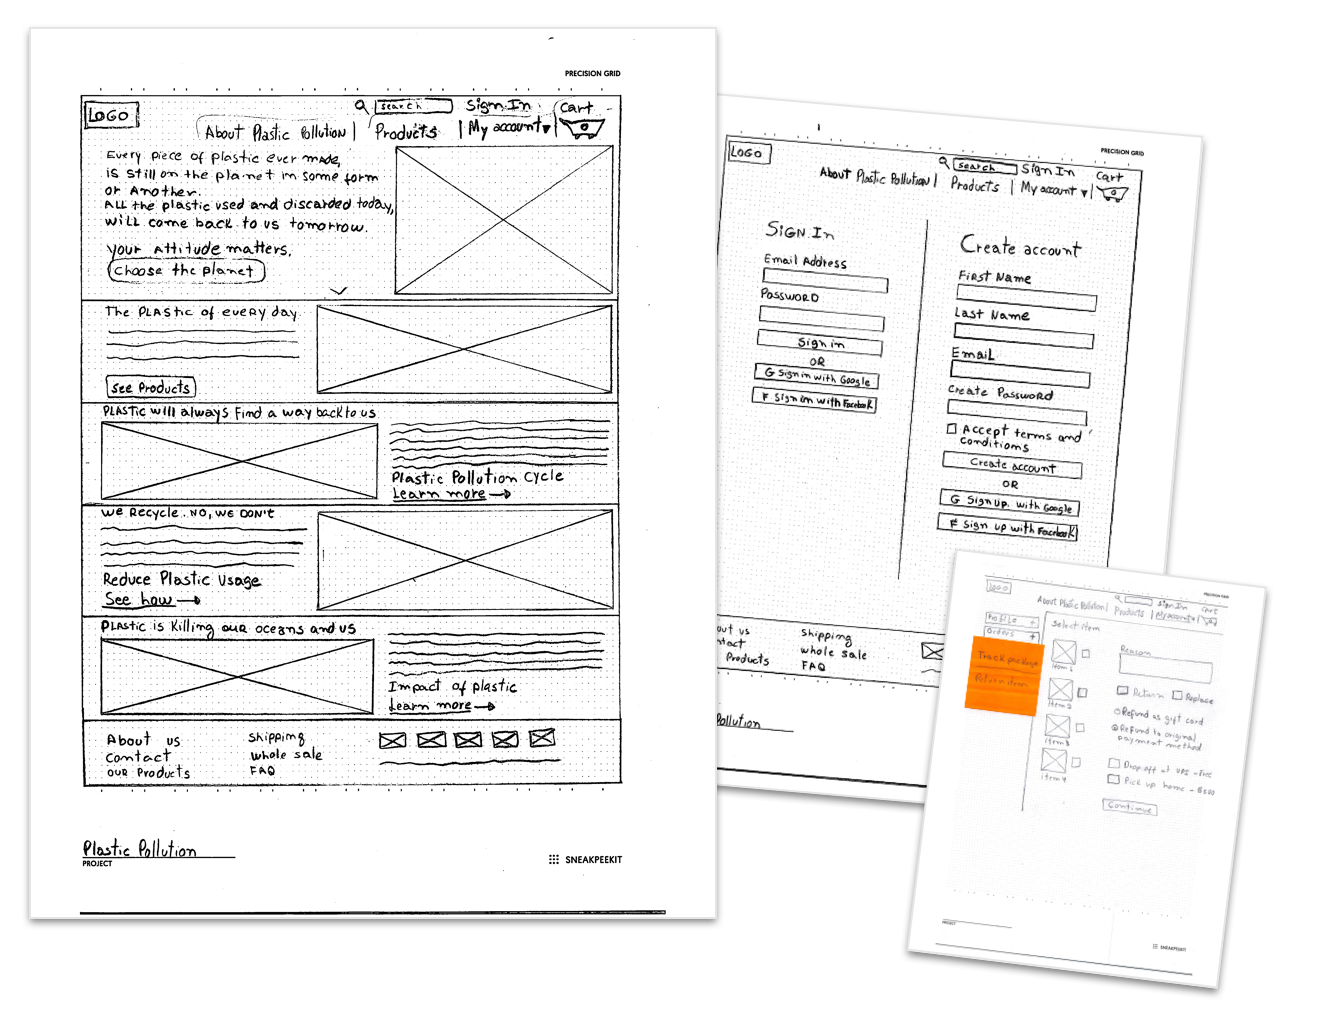 PRECISION GRID
LOGO
search
Sign In
Cart
About Plastic Pollution |
Products
| My account
Every piece of plastic ever made,
is still on the planet in some form
or Another.
ALL the plastic used and discarded today,
will come back to us tomorrow.
your Attitude matters.
Choose the planet
The PLAStic of everyday
See Products
PLAStic will always Find a way back to us
Plastic Pollution Cycle
Learn more
We Recycle.. NO, WE DON'T
Reduce Plastic Usage
See how
PLAStic is Killing our oceans and us
Impact of plastic
Learn more
About us
Shipping
Contact
whole sale
our Products
FAQ
Plastic Pollution
PROJECT
SNEAKPEEKIT
PRECISION GRID
LOGO
search
Sign In
Cart
About Plastic Pollution |
Products
| My account
Sign In
Email Address
Password
Sign in
OR
G Sign in with Google
F Sign in with Facebook
Create account
First Name
Last Name
Email
Create Password
Accept terms and
conditions
Create account
OR
G Sign up with Google
F Sign up with Facebook
out us
Shipping
ntact
whole sale
Products
FAQ
Pollution
PRECISION GRID
LOGO
Sign In
Cart
About Plastic Pollution |
Products
| My account
Profile +
Orders +
Track package
Return item
Select item
item 1
item 2
item 3
item 4
Reason
Return
Replace
Refund as gift card
Refund to original
payment method
Drop off at UPS - free
Pick up home -
Continue
PROJECT
SNEAKPEEKIT